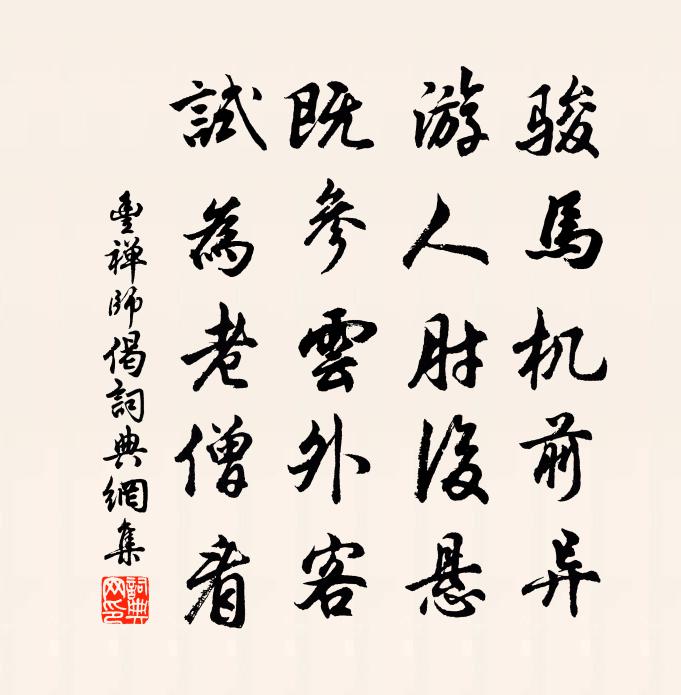 骏馬机前异
游人肘後悬
既參雲外客
試為老僧看
豊禅師偈詞典網集
詞典網印